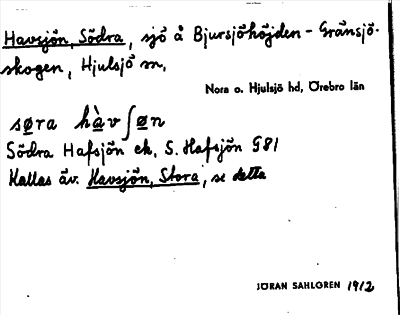 Havsjön, Södra, sjö å Bjursjöhöjden - Gränsjö-
skogen, Hjulsjö sn,
Nora o. Hjulsjö hd, Örebro län
søra hàvʃøn
Södra Hafsjön ek. S. Hafsjön G81
Kallas äv. Havsjön, Stora, se detta
JÖRAN SAHLGREN 1912